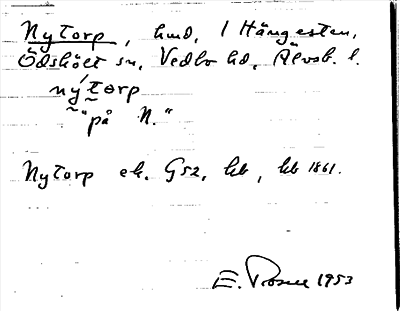 Nytorp, hmd, 1 Hängesten,
Ödskölt sn, Vedbo hd, Älvsb. l.
nýtorp
"på N."
Nytorp ek. G52, hb, hb 1861.
E. Rosell 1953